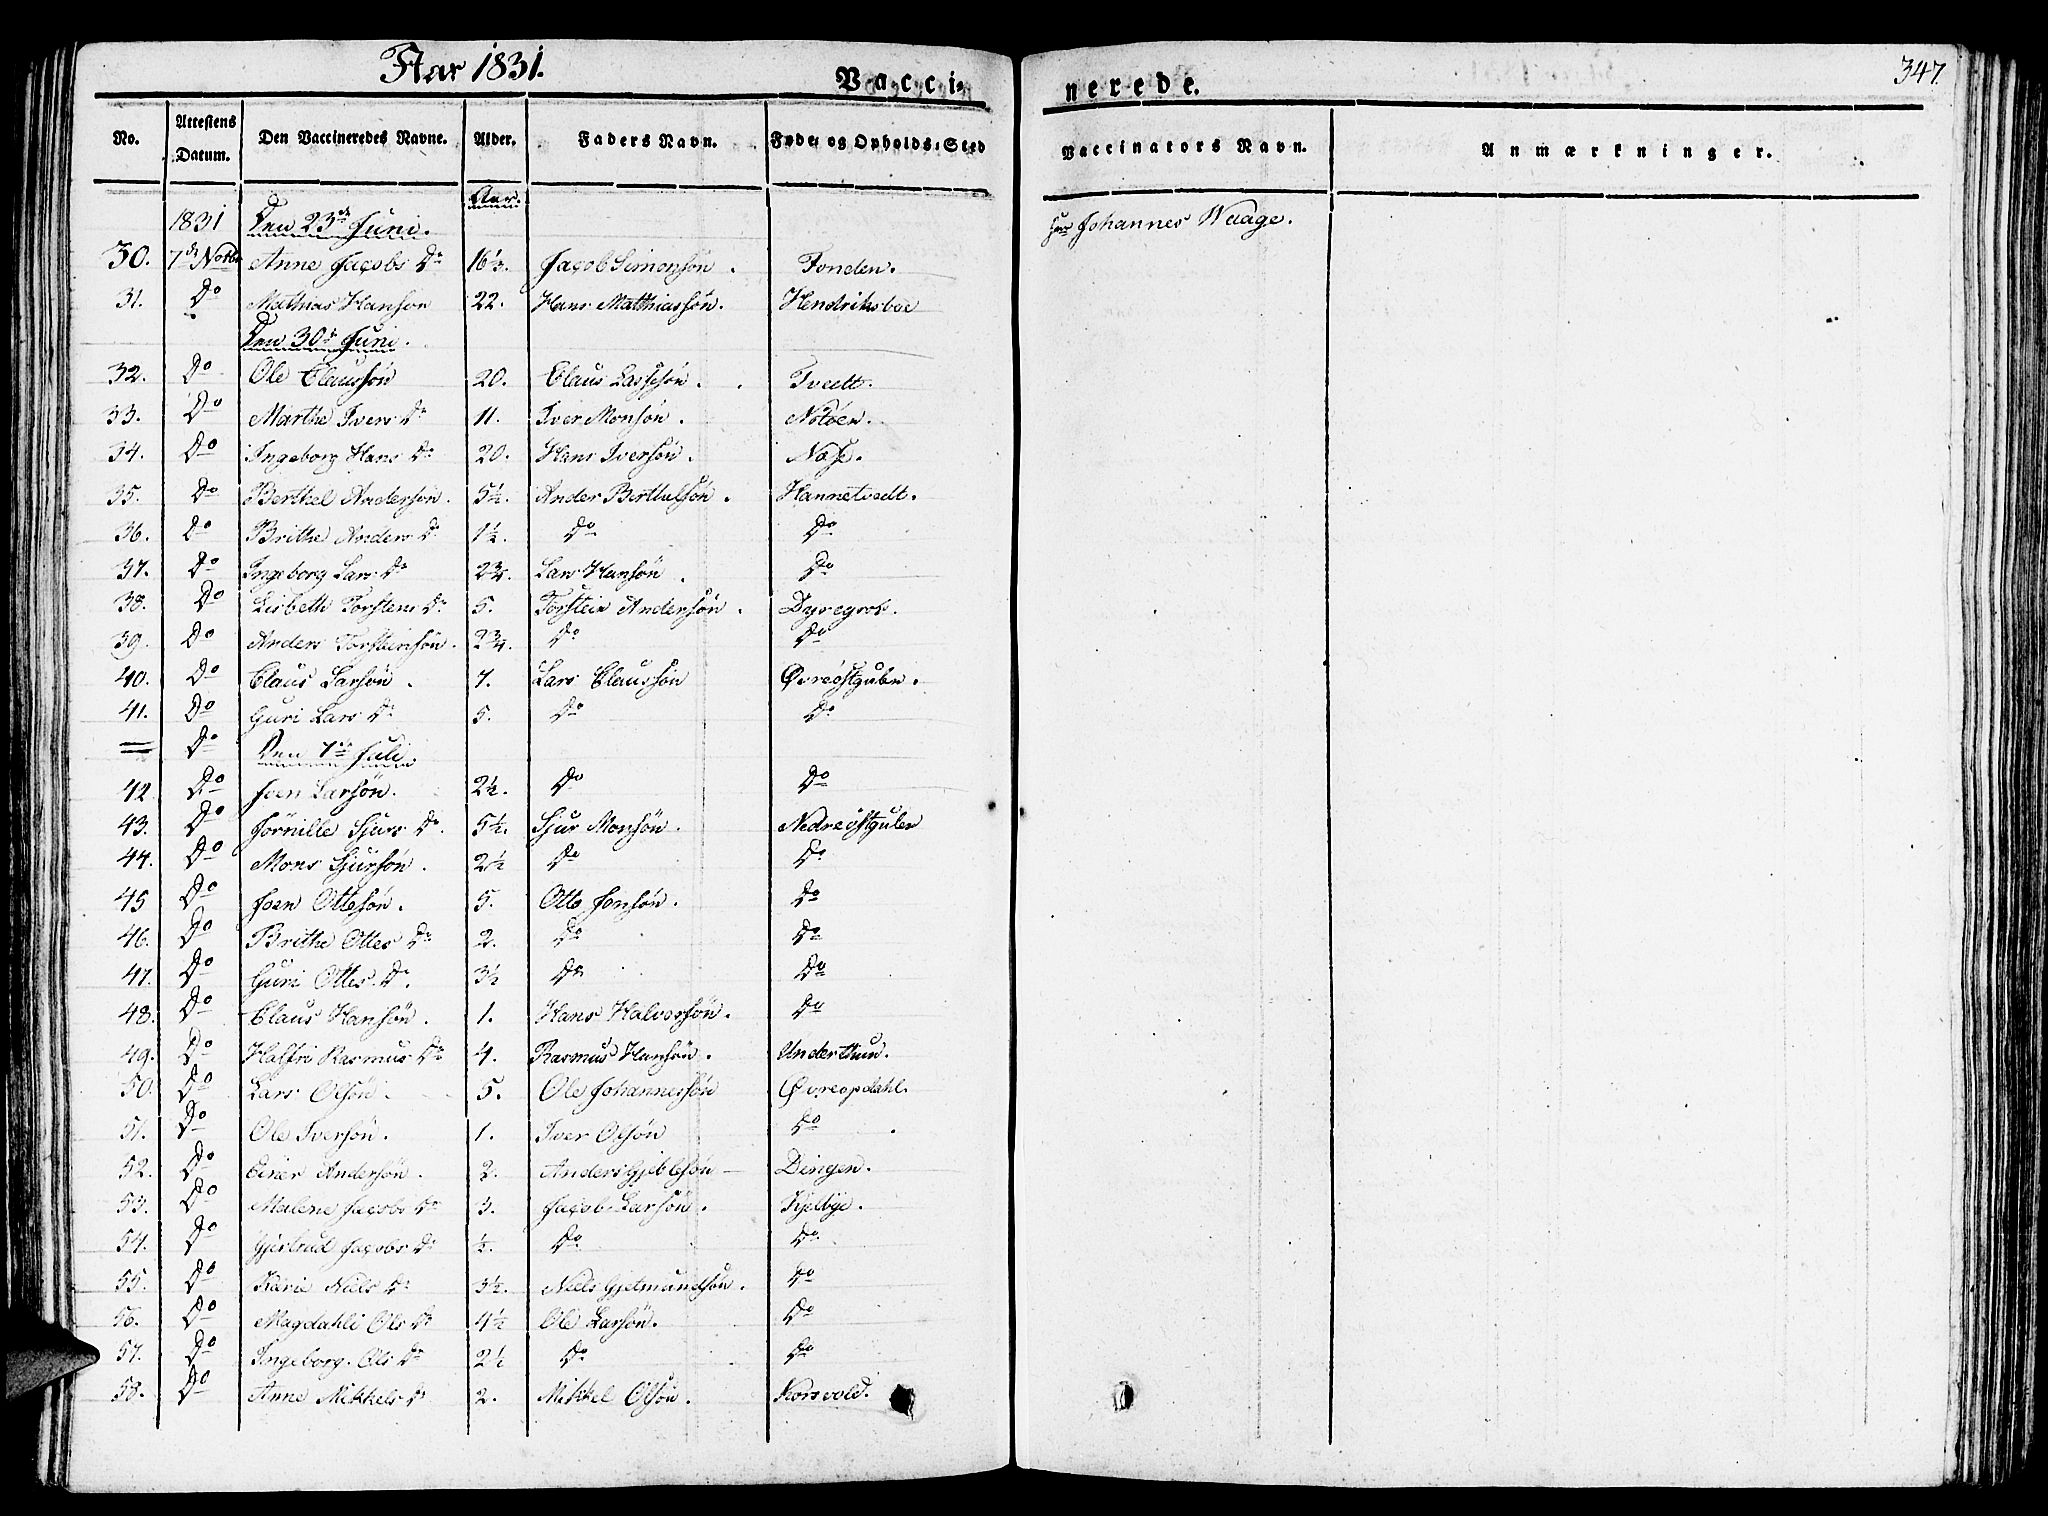 Aar 1831.
Vacci-
nerede.
347
No.
Attestens Datum.
Den Vaccineredes Navne.
Alder.
Faders Navn.
Føde- og Opholds-Sted
Vaccinators Navn.
Anmærkninger.
Aar.
1831 Den 23de Juni. Johannes Waage.
30. 7de Novbr Anne Jacobs Dr 16 1/2. Jacob Simonsøn. Fonden.
31. Do Mathias Hansøn 22. Hans Matthiassøn. Hendriksboe
Den 30te Juni.
32. Do Ole Claussøn 20. Claus Lassesøn. Tvedt.
33. Do Marthe Ivers Dr 11. Iver Monsøn. Notøen.
34. Do Ingeborg Hans Dr 20. Hans Iversøn. Nose.
35. Do Berthel Andersøn. 5 1/2. Ander Berthelsøn. Hannetvedt.
36. Do Brithe Anders Dr 1 1/2. Do Do
37. Do Ingeborg Lars Dr 2 3/4. Lars Hansøn. Do
38. Do Lisbeth Torstens Dr 5. Torstein Andersøn. Dyregrov.
39. Do Anders Torsteinsøn. 2 3/4. Do Do
40. Do Claus Larsøn. 7. Lars Claussøn Øvreøstgulen.
41. Do Guri Lars Dr 5. Do Do
= Do Den 7de Juli.
42. Do Joen Larsøn. 2 1/2. Do Do
43. Do Jørnille Sjurs Dr. 5 1/2. Sjur Monsøn. Nedreøstgulen
44. Do Mons Sjursøn. 2 1/2 Do Do
45 Do Joen Ottesøn. 5. Otto Jonsøn. Do
46. Do Brithe Ottes Dr 2. Do Do
47. Do Guri Ottes Dr. 3 1/2 Do Do
48. Do Claus Hansøn. 1. Hans Halvorsøn. Do
49. Do Halfri Rasmus Dr 4. Rasmus Hansøn. Underthun.
50. Do Lars Olsøn. 5. Ole Johannessøn Øvreopdahl.
51. Do Ole Iversøn. 1. Iver Olsøn Do
52. Do Einer Andersøn. 2. Anders Gjeblesøn Dingen.
53. Do Malene Jacobs Dr 3. Jacob Larsøn. Kjelbye.
54. Do Gjertrud Jacobs Dr 1/2. Do Do
55. Do Karie Niels Dr 3 1/2. Niels Gjelmundsøn. Do
56. Do Magdahli Ols Dr 4 1/2 Ole Larsøn. Do
57. Do Ingeborg Ols Dr 2 1/2 Do Do
58. Do Anne Mikkels Dr 2. Mikkel Olsøn. Korsvold.